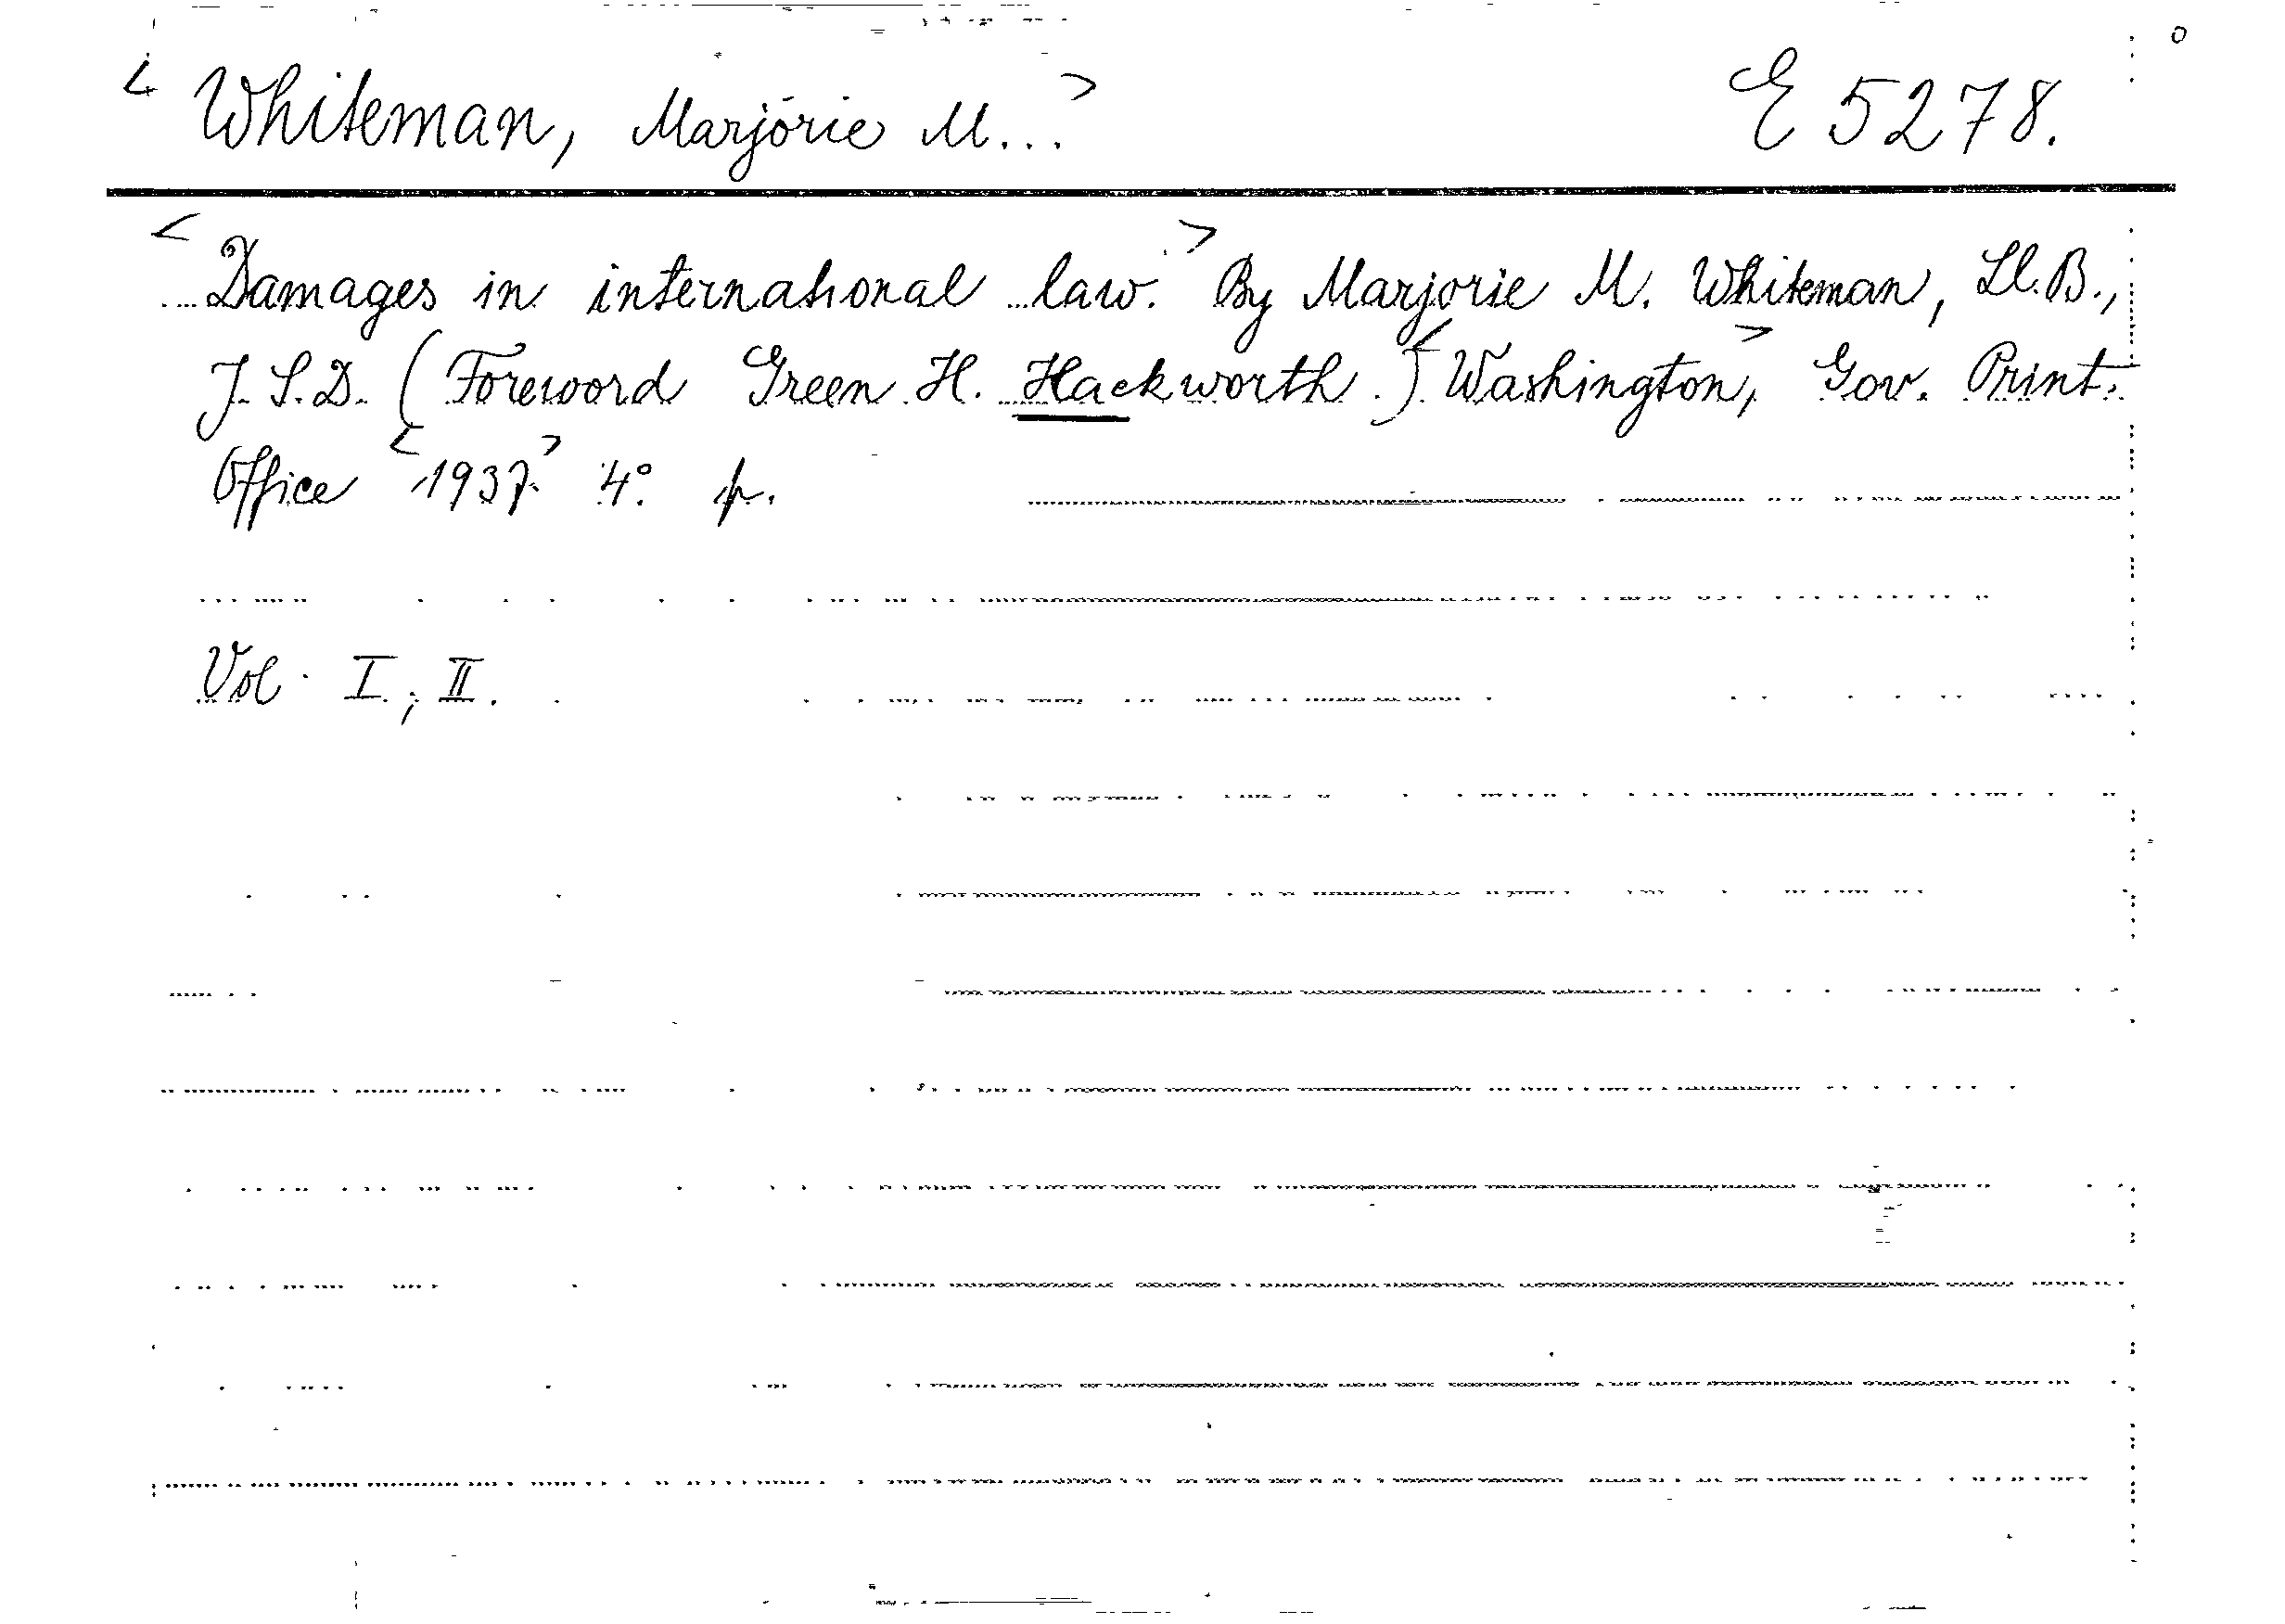 < Whiteman, Marjorie M...> E 5278.
< Damages in international law.> By Marjorie M. Whiteman, Ll.B.,
J.S.D. (Foreword Green H. Hackworth.) < Washington,> Gov. Print.
Office <1937.> 4° p.
Vol. I, II.